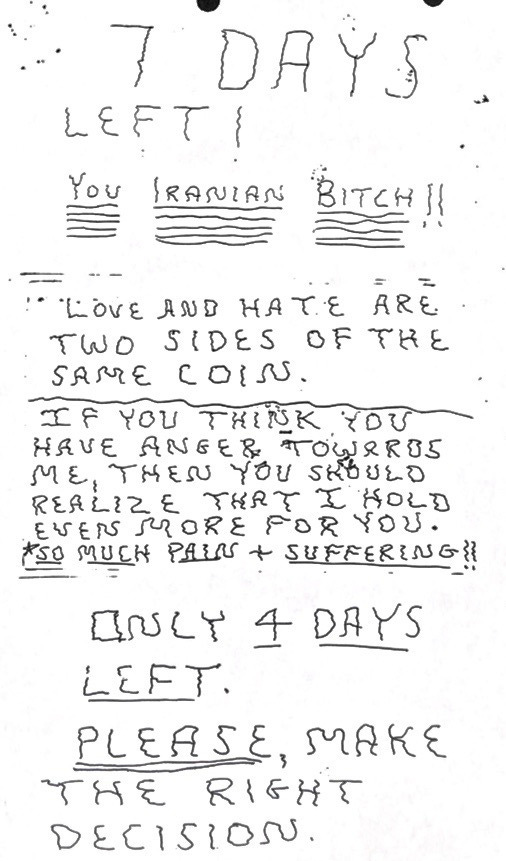 7 DAYS
LEFT!
YOU IRANIAN BITCH!!
"LOVE AND HATE ARE
TWO SIDES OF THE
SAME COIN.
IF YOU THINK YOU
HAVE ANGER TOWARDS
ME, THEN YOU SHOULD
REALIZE THAT I HOLD
EVEN MORE FOR YOU.
*SO MUCH PAIN + SUFFERING!!
ONLY 4 DAYS
LEFT.
PLEASE, MAKE
THE RIGHT
DECISION.